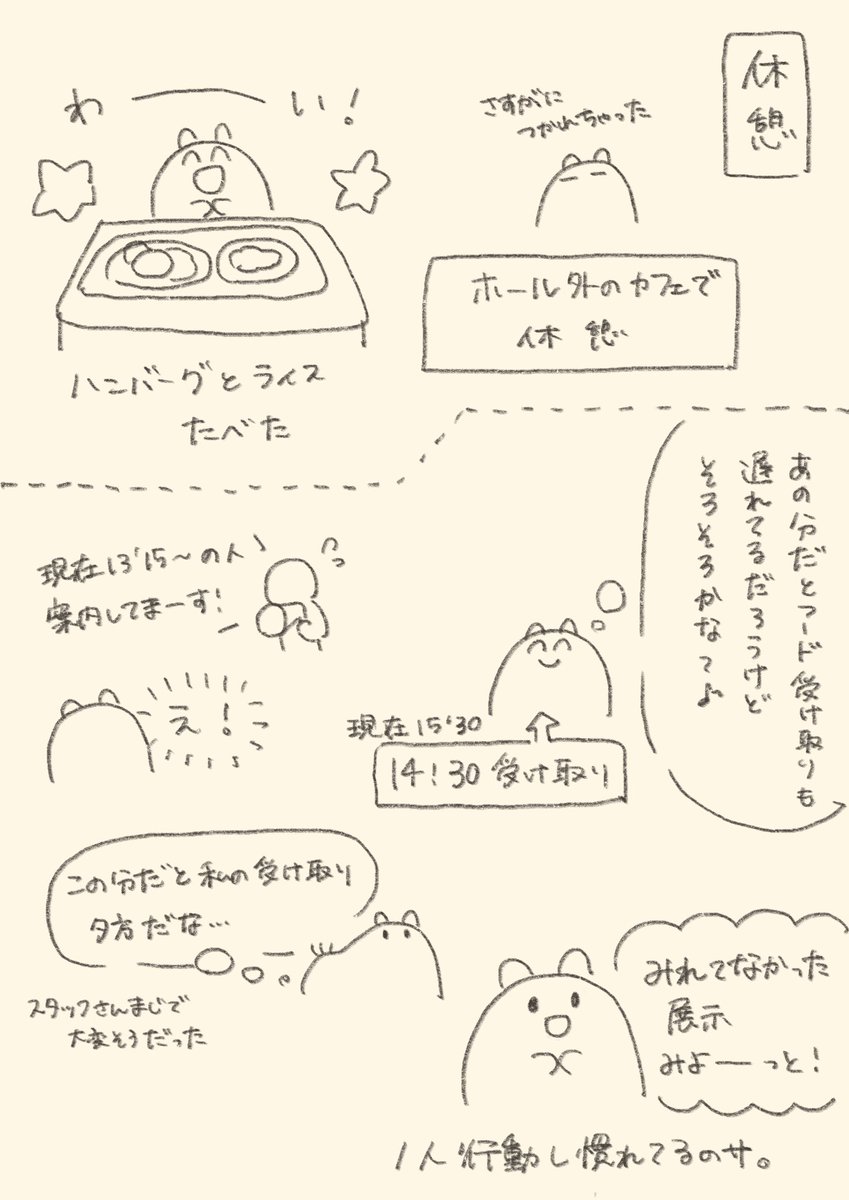 休
憩
さすがに
つかれちゃった
ホール外のカフェで
休憩
わーい!
ハンバーグとライス
たべた
あの分だとフード受け取りも
遅れてるだろうけど
そろそろかなって♪
現在15'30
14:30受け取り
現在13'15~の人
案内してまーす!
え!
この分だと私の受け取り
夕方だな…
スタッフさんまじで
大変そうだった
みれてなかった
展示
みよーっと!
1人行動し慣れてるのサ。